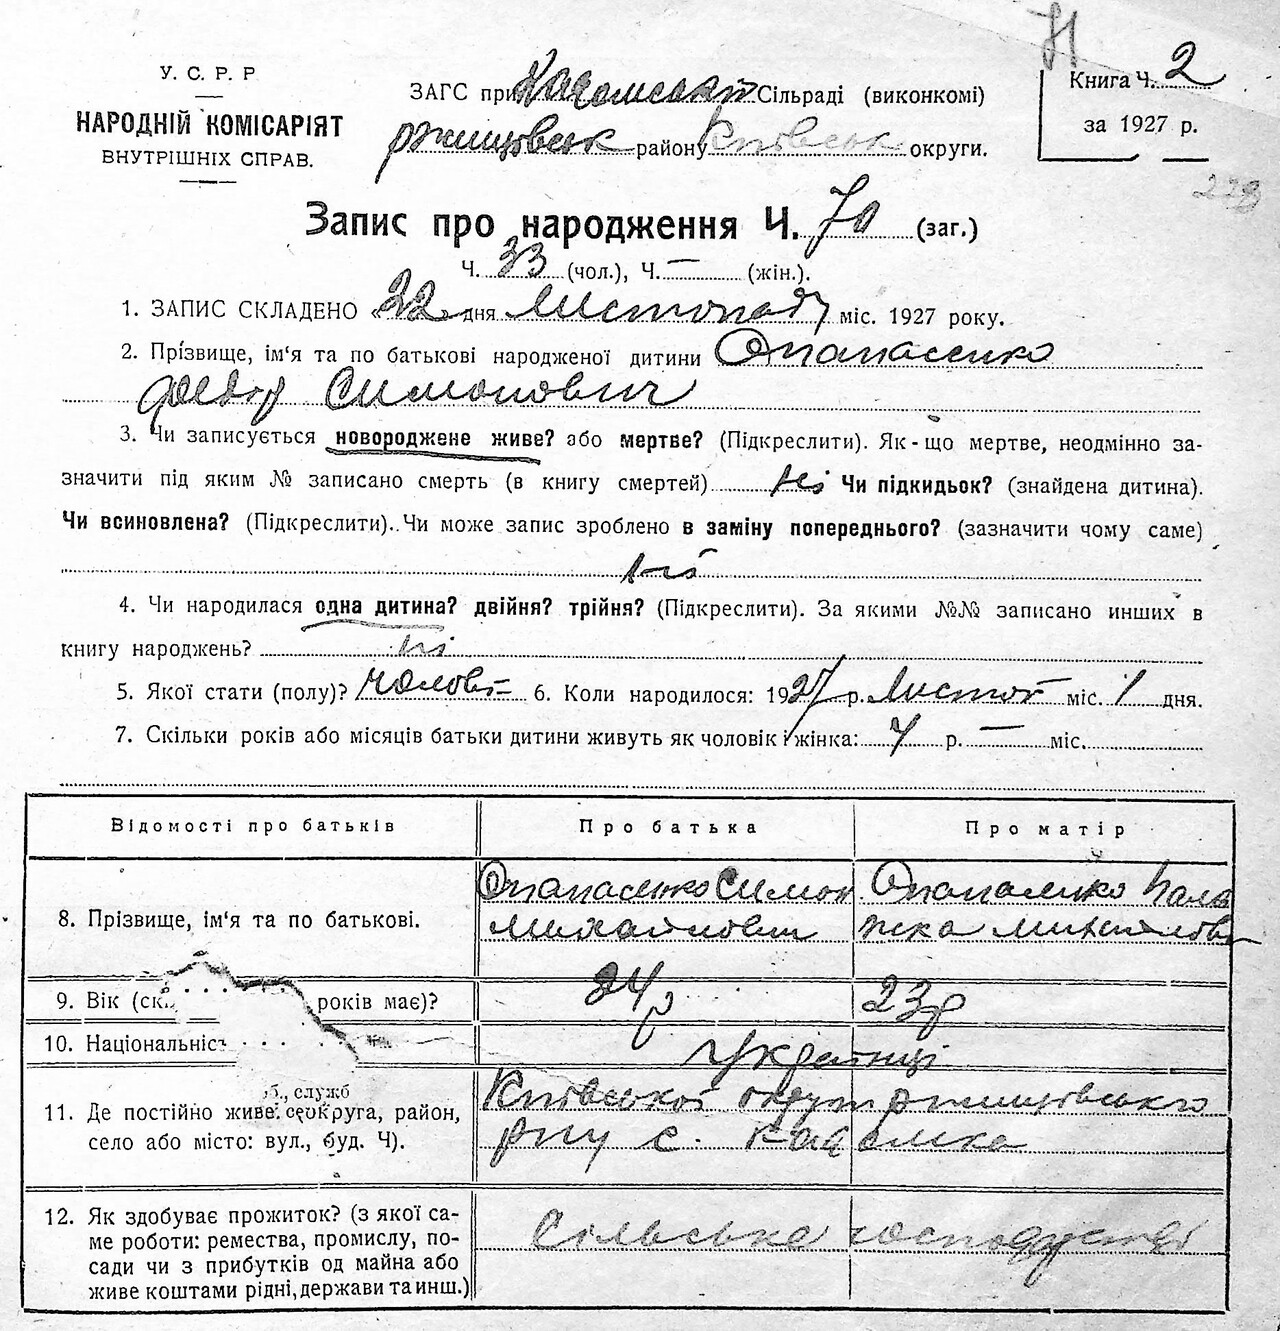 У. С. Р. Р
НАРОДНІЙ КОМІСАРІЯТ
ВНУТРІШНІХ СПРАВ.
ЗАГС при Сільраді (виконкомі)
ржищівськ району Київськ округи.
Книга Ч. 2
за 1927 р.
229
Запис про народження Ч. 70 (заг.)
Ч. 33 (чол.), Ч. — (жін.).
1. ЗАПИС СКЛАДЕНО „22" дня Листопаду міс. 1927 року.
2. Прізвище, ім'я та по батькові народженої дитини Опанасенко
Симонович
3. Чи записується новороджене живе? або мертве? (Підкреслити). Як-що мертве, неодмінно за-
значити під яким № записано смерть (в книгу смертей) ні Чи підкидьок? (знайдена дитина).
Чи всиновлена? (Підкреслити). Чи може запис зроблено в заміну попереднього? (зазначити чому саме)
ні
4. Чи народилася одна дитина? двійня? трійня? (Підкреслити). За якими №№ записано инших в
книгу народжень? ні
5. Якої стати (полу)? чолові- 6. Коли народилося: 1927 р. Листоп міс. 1 дня.
7. Скільки років або місяців батьки дитини живуть як чоловік і жінка: 4 р. — міс.
Відомості про батьків Про батька Про матір
8. Прізвище, ім'я та по батькові.
Опанасенко Симон
Михайлович
Опанасенко Пала
жка Михайлов
9. Вік (ск. років має)? 24р 23р
10. Національніс Українці
об., служб
11. Де постійно живе: округа, район,
село або місто: вул., буд. Ч).
Київської округи ржищівського
рну с.
12. Як здобуває прожиток? (з якої са-
ме роботи: ремества, промислу, по-
сади чи з прибутків од майна або
живе коштами рідні, держави та инш.)
Сільське господарство